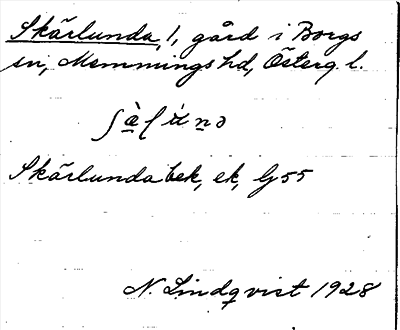 Skärlunda, 1, gård i Borgs
sn, Memmings hd, Österg. l.
Skärlunda bek, ek, Gj 55
N. Lindqvist 1928